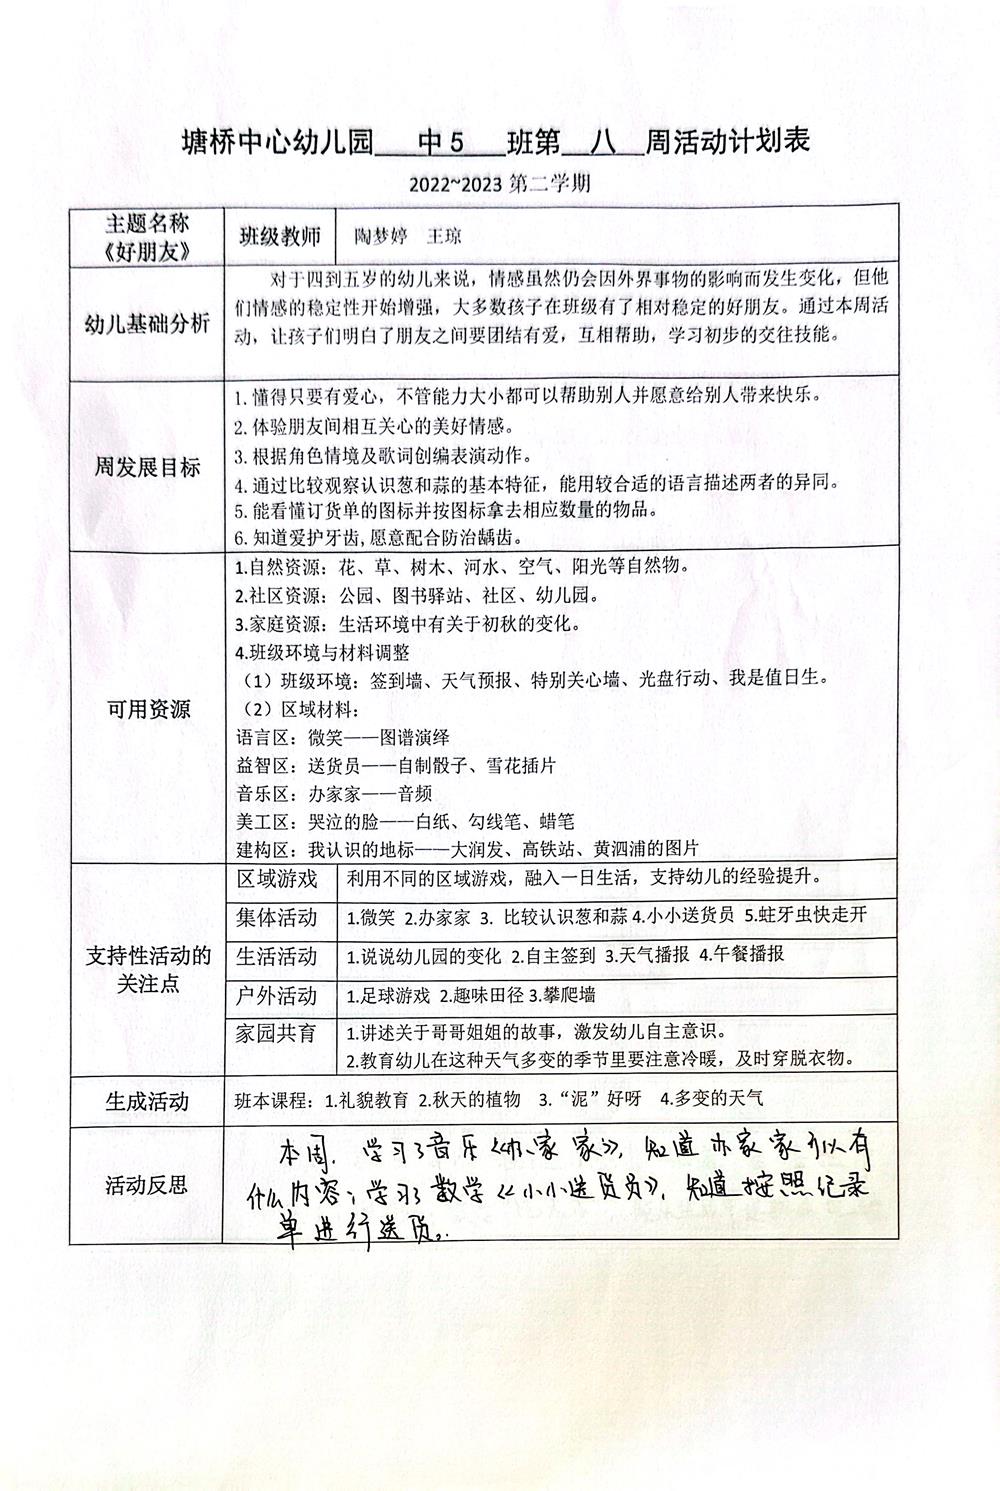 塘桥中心幼儿园 中5 班第 八 周活动计划表
2022~2023 第二学期
主题名称
《好朋友》
班级教师 陶梦婷 王琼
幼儿基础分析
对于四到五岁的幼儿来说，情感虽然仍会因外界事物的影响而发生变化，但他
们情感的稳定性开始增强，大多数孩子在班级有了相对稳定的好朋友。通过本周活
动，让孩子们明白了朋友之间要团结有爱，互相帮助，学习初步的交往技能。
周发展目标
1. 懂得只要有爱心，不管能力大小都可以帮助别人并愿意给别人带来快乐。
2. 体验朋友间相互关心的美好情感。
3. 根据角色情境及歌词创编表演动作。
4. 通过比较观察认识葱和蒜的基本特征，能用较合适的语言描述两者的异同。
5. 能看懂订货单的图标并按图标拿去相应数量的物品。
6. 知道爱护牙齿,愿意配合防治龋齿。
可用资源
1.自然资源：花、草、树木、河水、空气、阳光等自然物。
2.社区资源：公园、图书驿站、社区、幼儿园。
3.家庭资源：生活环境中有关于初秋的变化。
4.班级环境与材料调整
（1）班级环境：签到墙、天气预报、特别关心墙、光盘行动、我是值日生。
（2）区域材料：
语言区：微笑——图谱演绎
益智区：送货员——自制骰子、雪花插片
音乐区：办家家——音频
美工区：哭泣的脸——白纸、勾线笔、蜡笔
建构区：我认识的地标——大润发、高铁站、黄泗浦的图片
支持性活动的
关注点
区域游戏 利用不同的区域游戏，融入一日生活，支持幼儿的经验提升。
集体活动 1.微笑 2.办家家 3. 比较认识葱和蒜 4.小小送货员 5.蛀牙虫快走开
生活活动 1.说说幼儿园的变化 2.自主签到 3.天气播报 4.午餐播报
户外活动 1.足球游戏 2.趣味田径 3.攀爬墙
家园共育 1.讲述关于哥哥姐姐的故事，激发幼儿自主意识。
2.教育幼儿在这种天气多变的季节里要注意冷暖，及时穿脱衣物。
生成活动 班本课程：1.礼貌教育 2.秋天的植物 3.“泥”好呀 4.多变的天气
活动反思
本周，学习了音乐《办家家》，知道办家家可以有
什么内容；学习了数学《小小送货员》，知道按照记录
单进行送货。